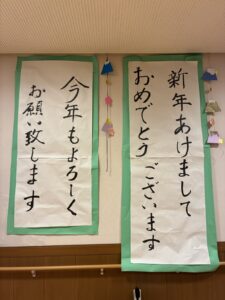 新年あけまして
おめでとうございます
今年もよろしく
お願い致します